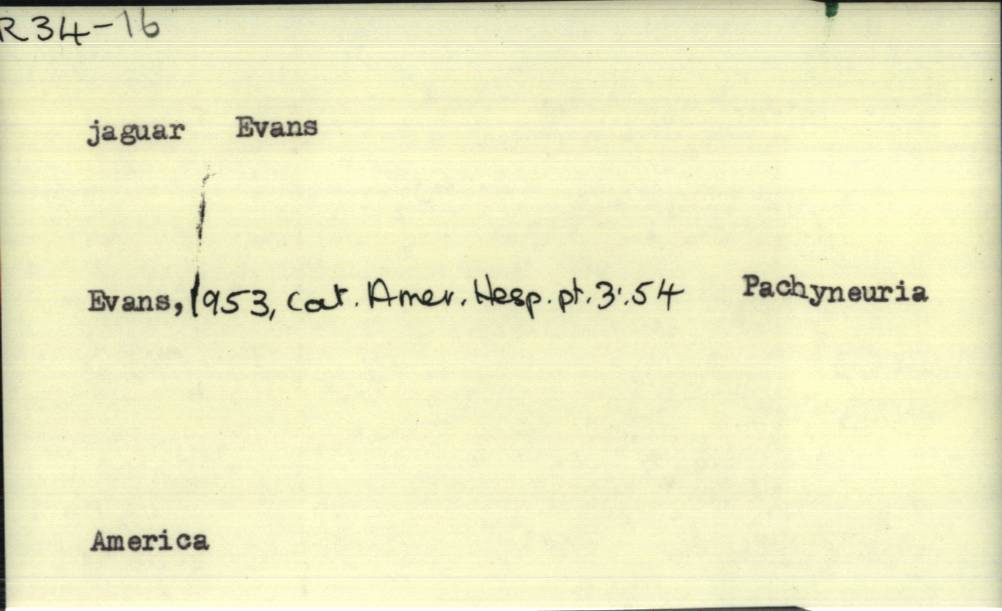 R34-16
jaguar Evans
Evans, 1953, Cat. Amer. Hesp. pt. 3:.54 Pachyneuria
America